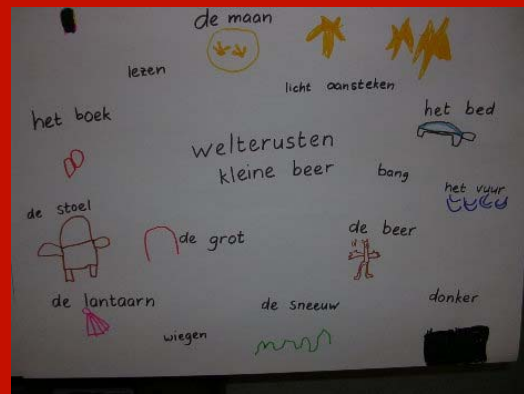 de maan
lezen
licht aansteken
het boek
het bed
welterusten
kleine beer
bang
het vuur
de stoel
de grot
de beer
de lantaarn
de sneeuw
donker
wiegen